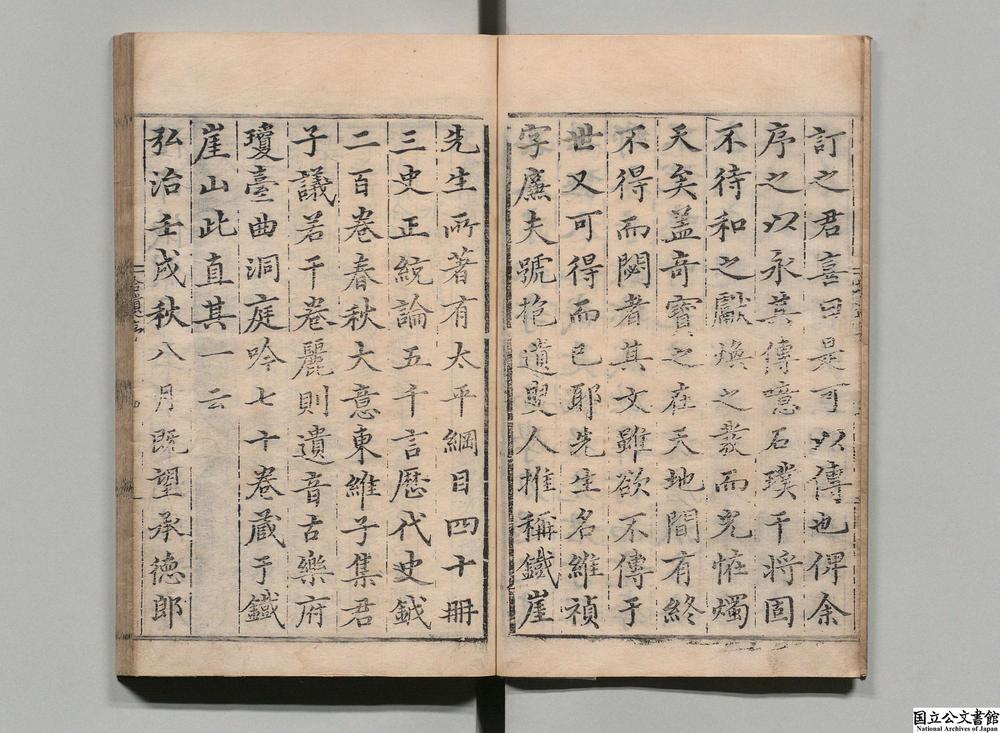 訂之君喜曰是可以傳也俾余
序之以永其傳噫石璞干將固
不待和之獻煥之發而光恠燭
天矣盖奇寶之在天地間有終
不得而閟者其文雖欲不傳于
世又可得而已耶先生名維禎
字廉夫號抱遺叟人推稱鐵崖
先生所著有太平綱目四十冊
三史正統論五千言歷代史鉞
二百卷春秋大意東維子集君
子議若干卷麗則遺音古樂府
瓊臺曲洞庭吟七十卷蔵于鐵
崖山此直其一云
弘治壬戌秋八月既望承德郎
国立公文書館
National Archives of Japan